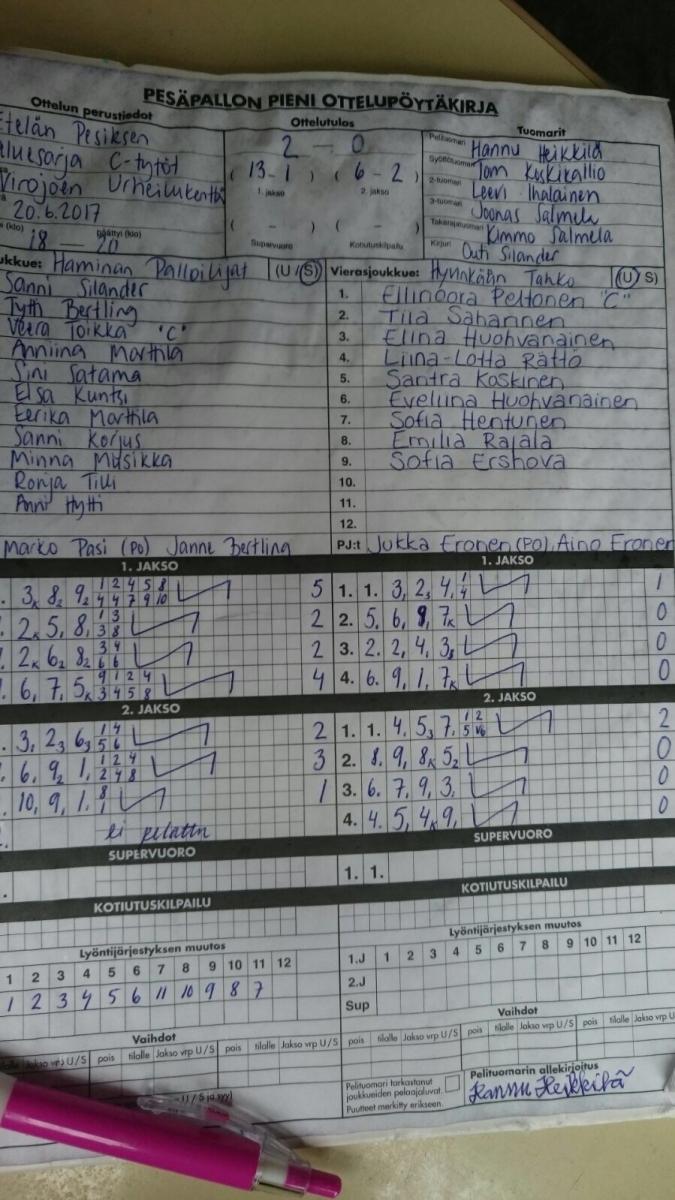 PESÄPALLON PIENI OTTELUPÖYTÄKIRJA
Ottelun perustiedot
Etelän Pesiksen
aluesarja C-tytöt
Virojoen Urheilukenttä
20.6.2017
(klo) päättyi (klo)
18 — 20
Ottelutulos
2 — 0
(13-1) (6-2)
1. jakso 2. jakso
( - ) ( - )
Supervuoro Kotiutuskilpailu
Tuomarit
Pelituomari Hannu Heikkilä
Syöttötuomari Tom Koskikallio
2-tuomari Leevi Ihalainen
3-tuomari Joonas Salmela
Takarajatuomari Kimmo Salmela
Kirjuri Outi Silander
ukkue: Haminan Palloilijat (U / S)
Sanni Silander
Tytti Bertling
Veera Toikka "C"
Anniina Marttila
Sini Satama
Elsa Kuntsi
Eerika Marttila
Sanni Korjus
Minna Musikka
Ronja Tilli
Anni Hytti
Marko Pasi (PO) Janne Bertling
Vierasjoukkue: Hyvinkään Tahko (U / S)
1. Ellinoora Peltonen "C"
2. Tiia Sahannen
3. Elina Huohvanainen
4. Liina-Lotta Rättö
5. Santra Koskinen
6. Eveliina Huohvanainen
7. Sofia Hentunen
8. Emilia Rajala
9. Sofia Ershova
10.
11.
12.
PJ:t Jukka Eronen (PO), Aino Eronen
1. JAKSO
3K 8 2 9 2 1 2 4 5 8 5
4 4 7 9 10
2K 5, 8, 1 3 2
3 8
2K 6 2 8 2 3 4 2
6 6
6, 7, 5K 9 1 2 4 4
3 4 5 8
2. JAKSO
3, 2 3 6 3 1 4 2
5 6
6, 9 2 1, 1 2 4 3
2 4 8
10, 9, 1, 8 1
1
ei pelattu
SUPERVUORO
KOTIUTUSKILPAILU
1. JAKSO
1. 1. 3, 2 3 4, 1 1
4
2. 5, 6, 8, 7K 0
3. 2. 2, 4, 3 0
4. 6. 9, 1, 7K 0
2. JAKSO
1. 1. 4, 5 3 7, 1 2 2
2. 8, 9, 8K 5 2 0
3. 6. 7, 9, 3, 0
4. 4. 5, 4K 9, 0
SUPERVUORO
1. 1.
KOTIUTUSKILPAILU
Lyöntijärjestyksen muutos
1 2 3 4 5 6 7 8 9 10 11 12
1 2 3 4 5 6 11 10 9 8 7
Vaihdot
tilalle Jakso vrp U/S pois tilalle Jakso vrp U/S pois tilalle Jakso vrp U/S
Lyöntijärjestyksen muutos
1.J 1 2 3 4 5 6 7 8 9 10 11 12
2.J
Sup
Vaihdot
pois tilalle Jakso vrp U/S pois tilalle Jakso vrp U/S pois tilalle Jakso vrp U
Pelituomari tarkastanut
joukkueiden pelaajaluvat.
Puutteet merkitty erikseen.
Pelituomarin allekirjoitus
Hannu Heikkilä